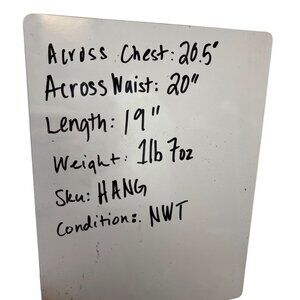 Across Chest: 20.5"
Across Waist: 20"
Length: 19"
Weight: 1lb 7oz
Sku: HANG
Condition: NWT